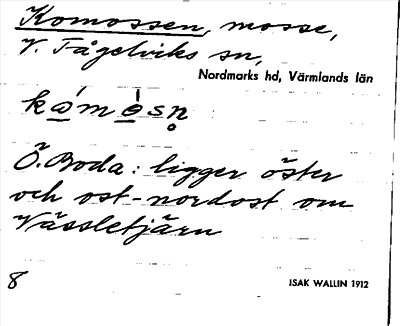 Komossen, mosse,
V. Fågelviks sn,
Nordmarks hd, Värmlands län
kòmòsn̥
Ö. Boda: ligger öster
och ost-nordost om
Vässletjärn
8
ISAK WALLIN 1912